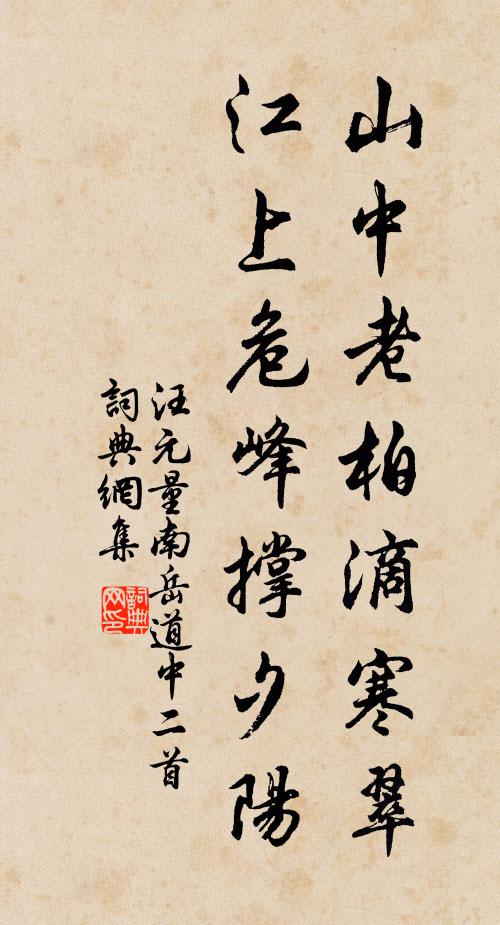 山中老柏滴寒翠
江上危峰撐夕陽
汪元量南岳道中二首
詞典網集
詞典网印